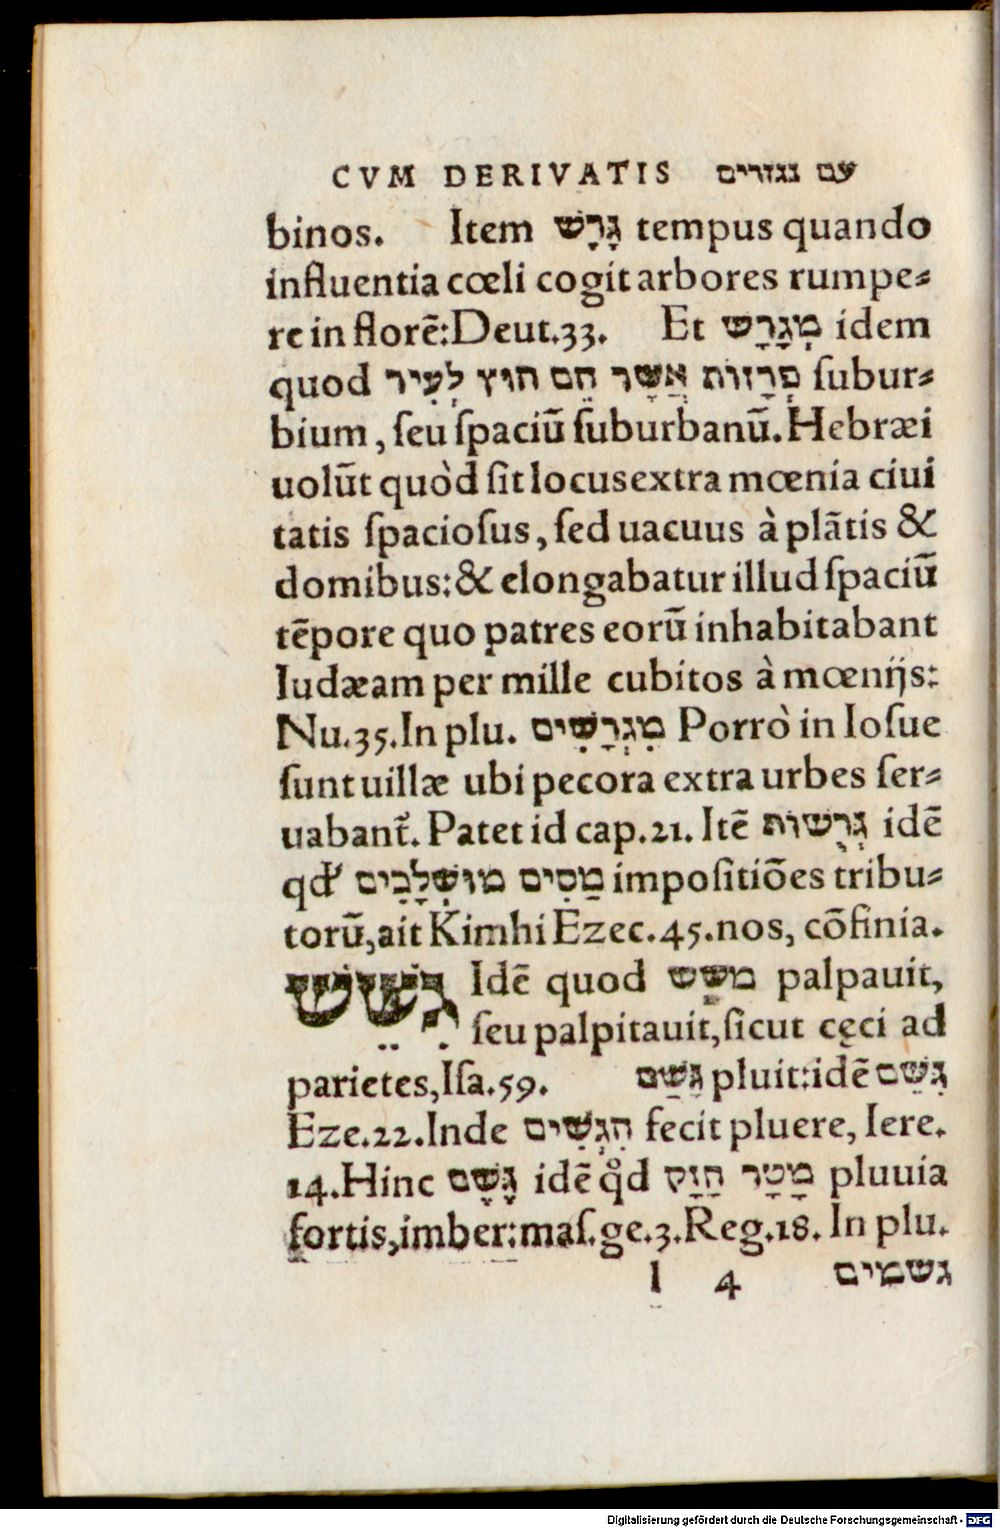 CVM DERIVATIS עם נגזרים
binos. Item גָּרָשׁ tempus quando
influentia cœli cogit arbores rumpe⸗
re in florē:Deut.33. Et מִגְרָשׁ idem
quod פְּרָזוֹת אֲשֶׁר הֵם חוּץ לְעִיר ſubur⸗
bium, ſeu ſpaciū ſuburbanū. Hebræi
uolūt quòd ſit locus extra mœnia ciui
tatis ſpacioſus, ſed uacuus à plātis &
domibus:& elongabatur illud ſpaciū
tēpore quo patres eorū inhabitabant
Iudæam per mille cubitos à mœnijs:
Nu.35.In plu. מִגְרָשִׁים Porrò in Ioſue
ſunt uillæ ubi pecora extra urbes ſer⸗
uabant᷑. Patet id cap.21. Itē גְּרֻשׁוֹת idē
qđ מַסִּים מוּשְׁלָבִים impoſitiōes tribu⸗
torū,ait Kimhi Ezec.45.nos, cōfinia.
גִּשֵּׁשׁ Idē quod משש palpauit,
ſeu palpitauit,ſicut cęci ad
parietes,Iſa.59. גֶּשֶׁם pluit:idē גָּשַׁם
Eze.22.Inde הִגְשִׁים fecit pluere, Iere.
14.Hinc גֶּשֶׁם idē qđ מָטָר חָזָק pluuia
fortis,imber:maſ.ge.3.Reg.18. In plu.
l 4 גשמים
Digitalisierung gefördert durch die Deutsche Forschungsgemeinschaft - DFG